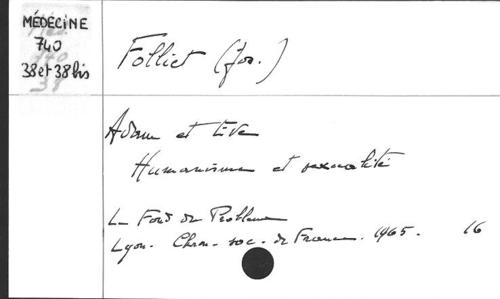 MÉDECINE
740
38 et 38 bis
Folliet (Jos.)
Adam et Eve
Humanisme et sexualité
Le Fond du Problème
Lyon. Chron. soc. de France. 1965. 16